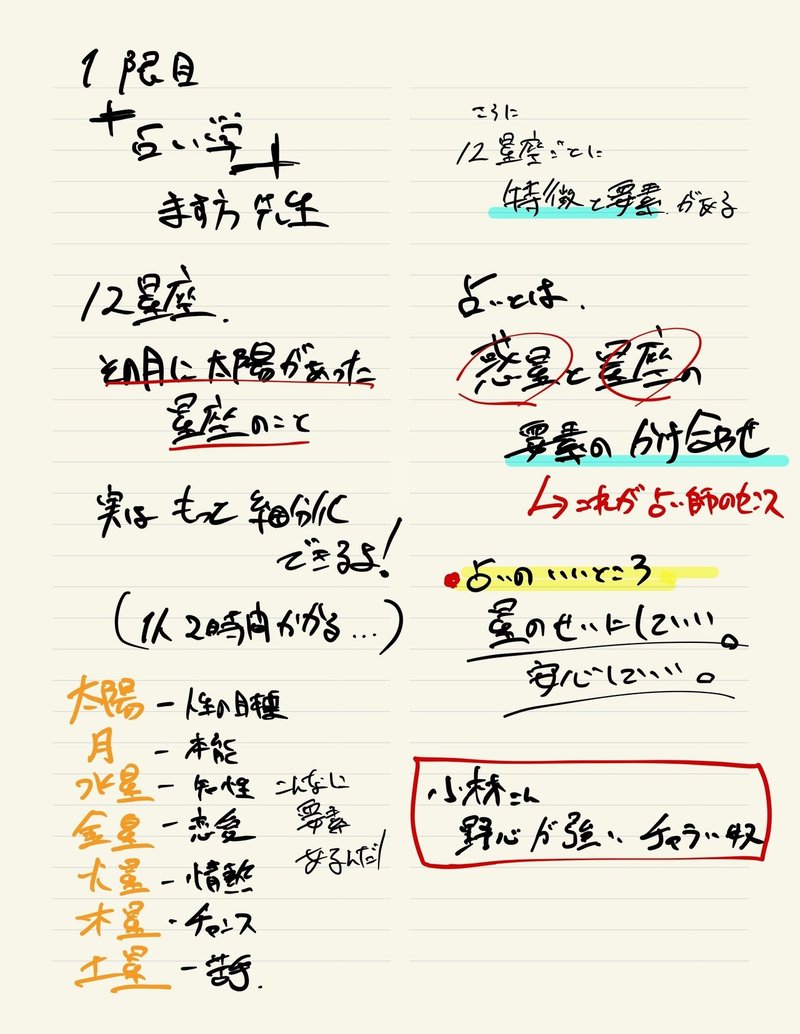 1限目
「占い学」
ます方先生
12星座.
その月に太陽があった
星座のこと
実はもっと細分化
できるよ!
(1人2時間かかる...)
太陽 - 人生の目標
月 - 本能
水星 - 知性
金星 - 恋愛
火星 - 情熱
木星 ・ チャンス
土星 - 苦手.
こんなに
要素
あるんだ!
さらに
12星座ごとに
特徴と要素がある
占いとは.
惑星と星座の
要素のかけ合わせ
↳これが占い師のセンス
・占いのいいところ
星のせいにしていい。
安心していい。
小林さん
野心が強いチャラい